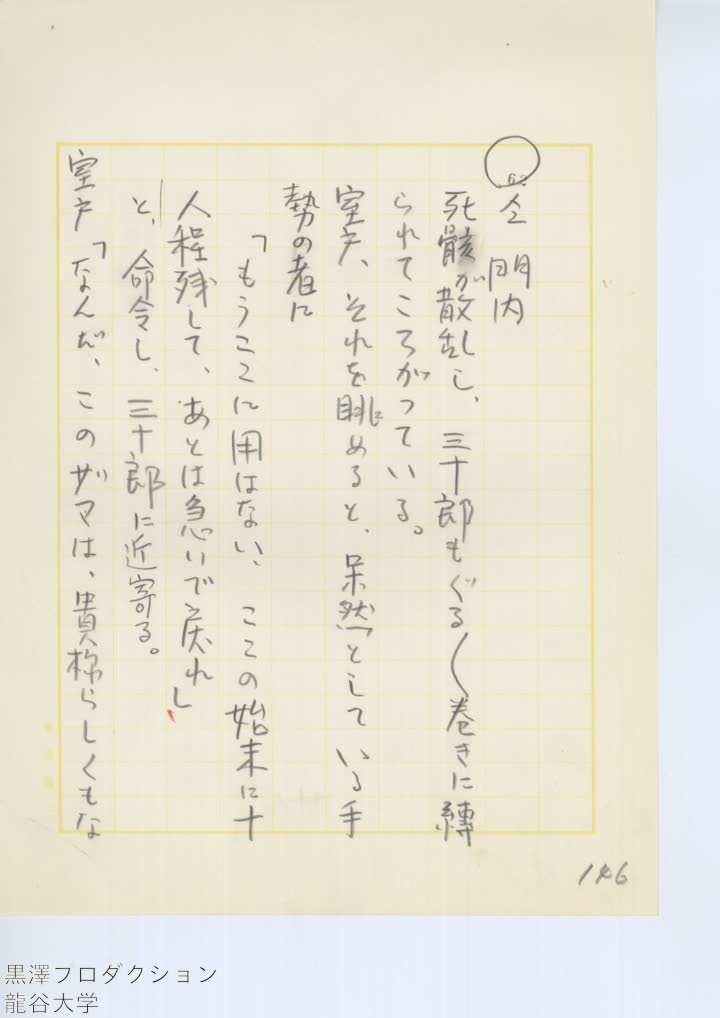 62
仝 門内
死骸が散乱し、三十郎もぐる〱巻きに縛
られてころがっている。
室戸、それを眺めると、呆然としている手
勢の者に
「もうここに用はない、ここの始末に十
人程残して、あとは急いで戻れ」
と、命令し、三十郎に近寄る。
室戸「なんだ、このザマは、貴様らしくもな
146
黒澤プロダクション
龍谷大学